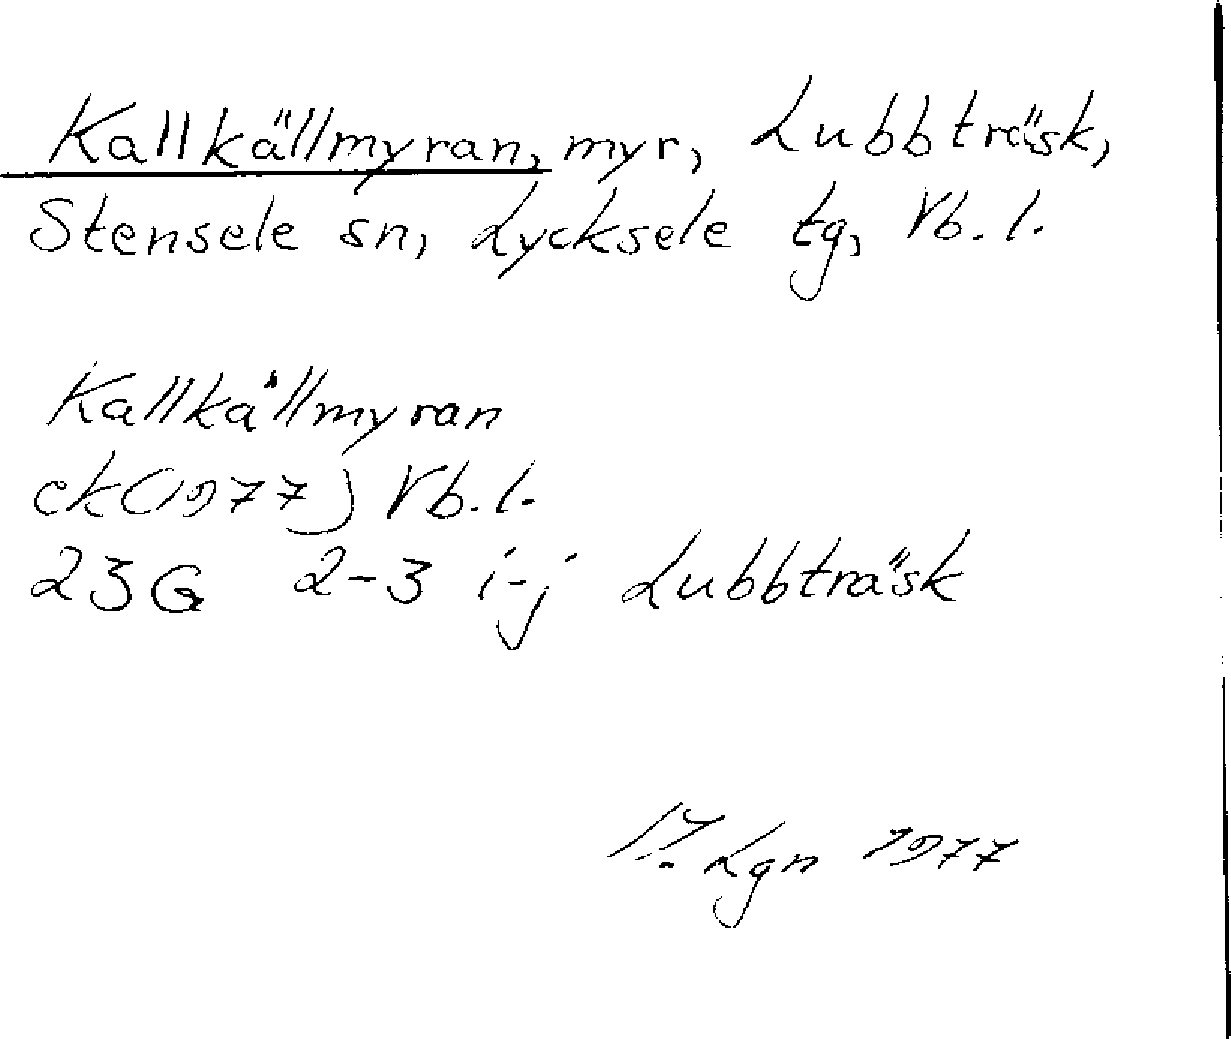 Kallkällmyran, myr, Lubbträsk,
Stensele sn, Lycksele tg, Vb. l.
Kallkällmyran
ek (1977) Vb. l.
23G 2-3 i-j Lubbträsk
Lgn 1977